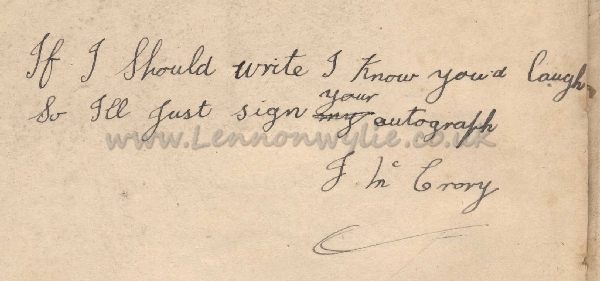 If I Should write I Know you'd Laugh
So I'll Just sign ~~my~~ your autograph
www.Lennonwylie.co.uk
J Mc Crory